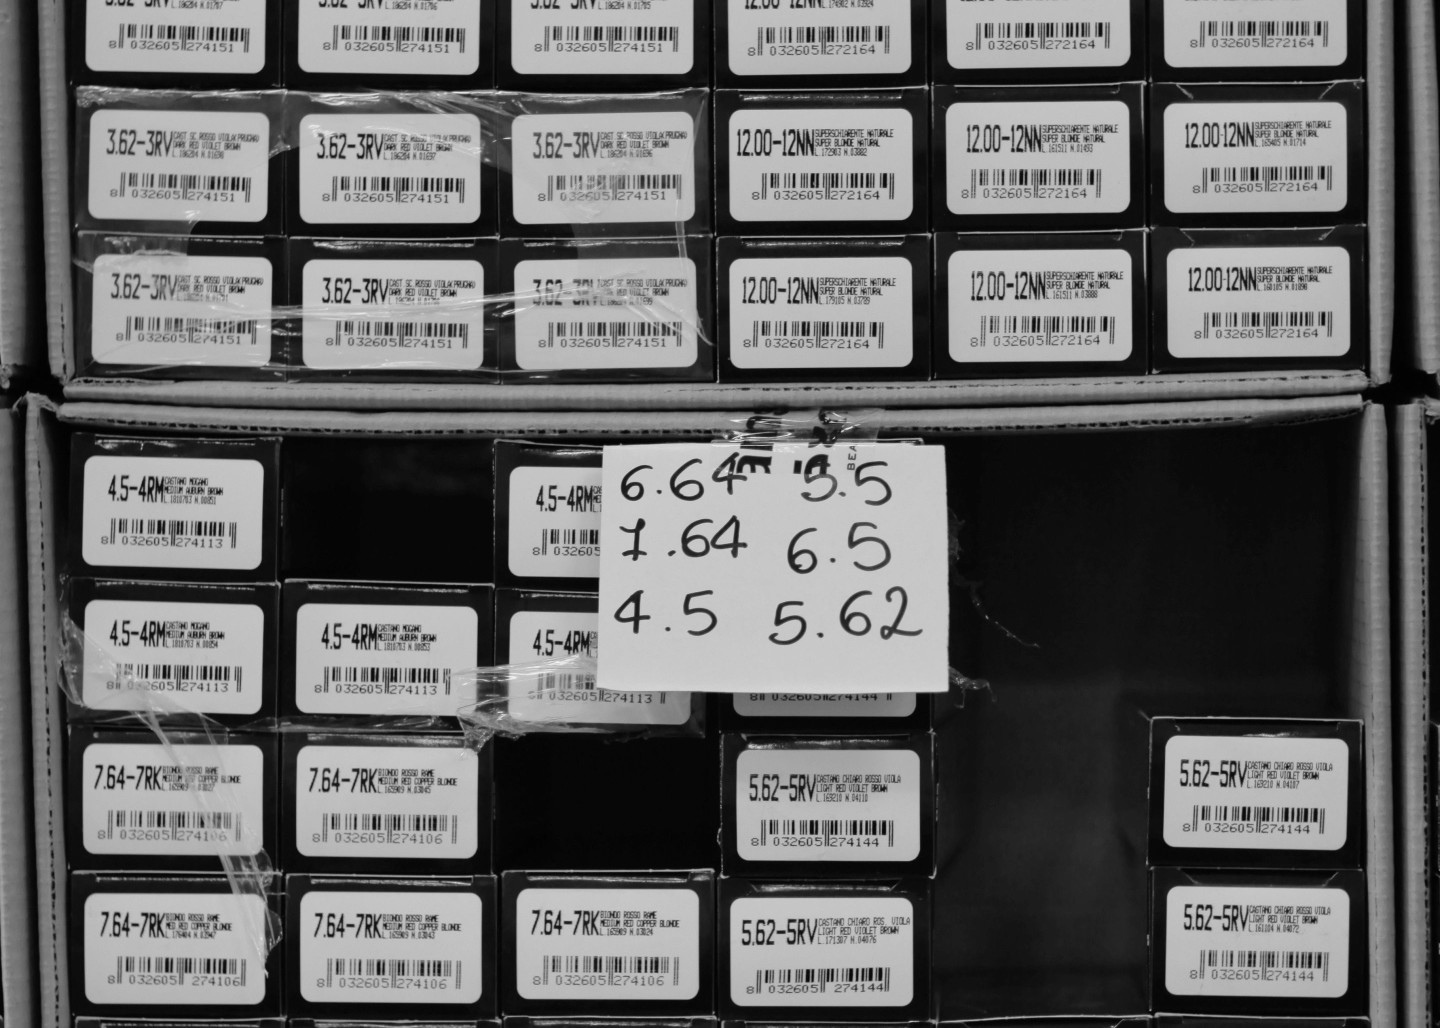 8 032605 274151
8 032605 274151
8 032605 274151
8 032605 272164
8 032605 272164
8 032605 272164
3.62-3RV CAST SC ROSSO VIOLA(PRUGNA)
DARK RED VIOLET BROWN
8 032605 274151
3.62-3RV CAST SC ROSSO VIOLA(PRUGNA)
DARK RED VIOLET BROWN
8 032605 274151
3.62-3RV CAST SC ROSSO VIOLA(PRUGNA)
DARK RED VIOLET BROWN
8 032605 274151
12.00-12NN SUPERSCHIARENTE NATURALE
SUPER BLONDE NATURAL
8 032605 272164
12.00-12NN SUPERSCHIARENTE NATURALE
SUPER BLONDE NATURAL
8 032605 272164
12.00-12NN SUPERSCHIARENTE NATURALE
SUPER BLONDE NATURAL
8 032605 272164
3.62-3RV CAST SC ROSSO VIOLA(PRUGNA)
DARK RED VIOLET BROWN
8 032605 274151
3.62-3RV CAST SC ROSSO VIOLA(PRUGNA)
DARK RED VIOLET BROWN
8 032605 274151
3.62-3RV CAST SC ROSSO VIOLA(PRUGNA)
DARK RED VIOLET BROWN
8 032605 274151
12.00-12NN SUPERSCHIARENTE NATURALE
SUPER BLONDE NATURAL
8 032605 272164
12.00-12NN SUPERSCHIARENTE NATURALE
SUPER BLONDE NATURAL
8 032605 272164
12.00-12NN SUPERSCHIARENTE NATURALE
SUPER BLONDE NATURAL
8 032605 272164
4.5-4RM CASTANO MOGANO
MEDIUM AUBURN BROWN
8 032605 274113
4.5-4RM
8 032605
6.64 5.5
7.64 6.5
4.5 5.62
BEA
4.5-4RM CASTANO MOGANO
MEDIUM AUBURN BROWN
8 032605 274113
4.5-4RM CASTANO MOGANO
MEDIUM AUBURN BROWN
8 032605 274113
4.5-4RM
8 032605 274113
8 032605 274144
7.64-7RK BIONDO ROSSO RAME
MEDIUM RED COPPER BLONDE
8 032605 274106
7.64-7RK BIONDO ROSSO RAME
MEDIUM RED COPPER BLONDE
8 032605 274106
5.62-5RV CASTANO CHIARO ROSSO VIOLA
LIGHT RED VIOLET BROWN
8 032605 274144
5.62-5RV CASTANO CHIARO ROSSO VIOLA
LIGHT RED VIOLET BROWN
8 032605 274144
7.64-7RK BIONDO ROSSO RAME
MED RED COPPER BLONDE
8 032605 274106
7.64-7RK BIONDO ROSSO RAME
MEDIUM RED COPPER BLONDE
8 032605 274106
7.64-7RK BIONDO ROSSO RAME
MEDIUM RED COPPER BLONDE
8 032605 274106
5.62-5RV CASTANO CHIARO ROS. VIOLA
LIGHT RED VIOLET BROWN
8 032605 274144
5.62-5RV CASTANO CHIARO ROSSO VIOLA
LIGHT RED VIOLET BROWN
8 032605 274144